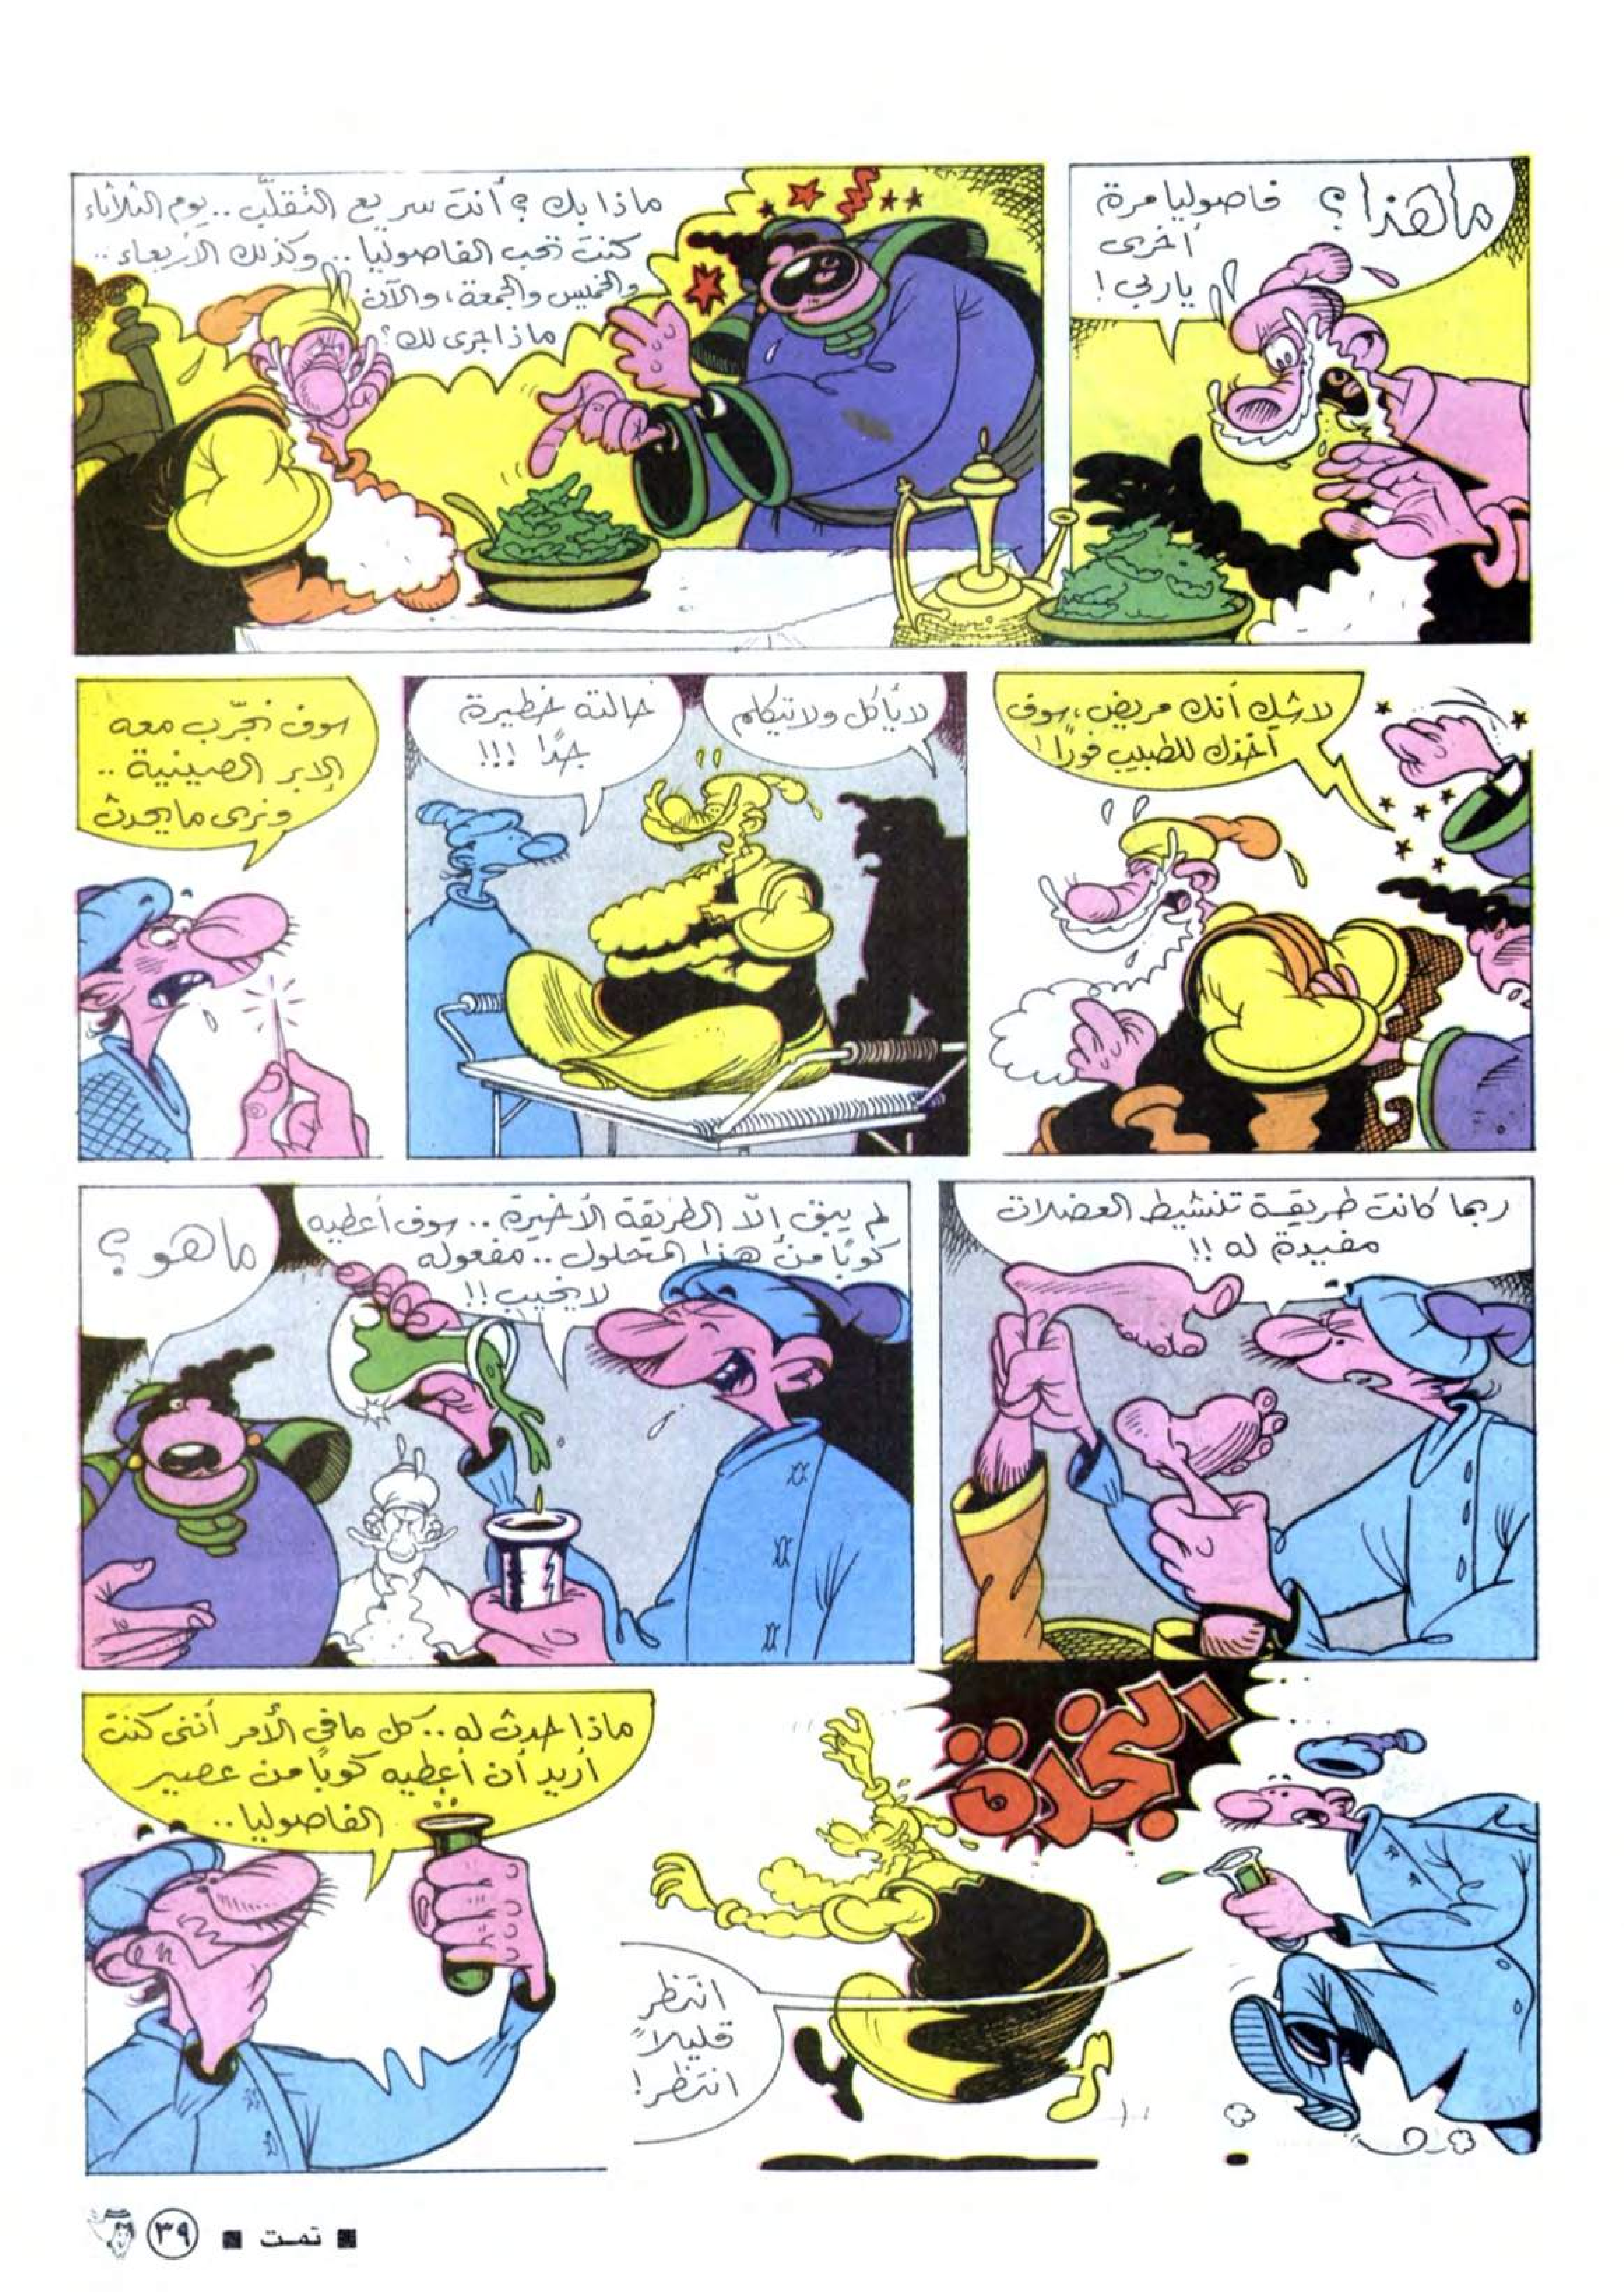 ما هذا؟ فاصوليا مرة
أخرى
ياربي!
ماذا بك؟ أنت سريع التقلّب.. يوم الثلاثاء
كنت تحب الفاصوليا.. وكذلك الأربعاء..
والخميس والجمعة، والآن
ماذا جرى لك؟
لاشك أنك مريض، سوف
آخذك للطبيب فورًا!
لا يأكل ولا يتكلم
حالته خطيرة
جدًا !!!
سوف نجرّب معه
الإبر الصينية..
ونرى ما يحدث
ربما كانت طريقة تنشيط العضلات
مفيدة له!!
لم يبق إلّا الطريقة الأخيرة.. سوف أعطيه
كوبًا من هذا المحلول.. مفعوله
لا يخيب!!
ما هو؟
النجدة
انتظر
قليلاً
انتظر!
ماذا حدث له.. كل ما في الأمر أنني كنت
أريد أن أعطيه كوبًا من عصير
الفاصوليا..
■ تمت ■ ٣٩